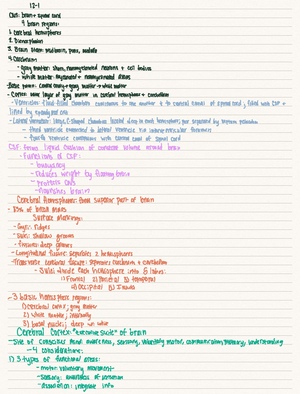 12-1
CNS: brain + spinal cord
4 brain regions:
1. Cerebral hemispheres
2. Diencephalon
3. Brain stem: midbrain, pons, medulla
4. Cerebellum
- gray matter: short, nonmyelinated neurons + cell bodies
- white matter: myelinated + nonmyelinated axons
Basic pattern: central cavity → gray matter → white matter
- Cortex: outer layer of gray matter in cerebral hemispheres + cerebellum
- Ventricles: fluid-filled chambers continuous to one another + to central canal of spinal cord, filled with CSF +
lined by ependymal cells
- Lateral ventricles: large, C-shaped chambers located deep in each hemisphere, separated by septum pellucidum
- third ventricle connected to lateral ventricle via interventricular foramen
- fourth ventricle continuous with central canal of spinal cord
CSF: forms liquid cushion of constant volume around brain
- Functions of CSF:
- buoyancy
- reduces weight by floating brain
- protects CNS
- nourishes brain
Cerebral Hemispheres: form superior part of brain
- 83% of brain mass
Surface Markings:
- Gyri: ridges
- Sulci: shallow grooves
- Fissures: deep grooves
- Longitudinal fissure: separates 2 hemispheres
- Transverse cerebral fissure: separates cerebrum + cerebellum
- Sulci divide each hemisphere into 5 lobes:
1) Frontal 2) Parietal 3) Temporal
4) Occipital 5) Insula
- 3 basic hemisphere regions:
1) cerebral cortex; gray matter
2) white matter; internally
3) basal nuclei; deep in white
Cerebral Cortex: "executive suite" of brain
- Site of conscious mind: awareness, sensory, voluntary motor, communication, memory, understanding
- 4 considerations:
1) 3 types of functional areas:
- motor: voluntary movement
- sensory: awareness of sensation
- Association: integrate info